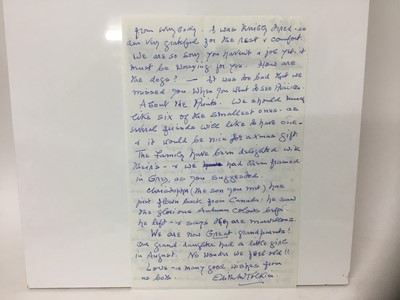 from everybody. I was thirsty tired - so
am very grateful for the rest & comfort.
We are so sorry you haven't a job yet, it
must be worrying for you. How are
the dogs? — It was so bad that we
missed you when you went to see
About the Prints. We should much
like six of the smallest ones - as
several friends will like to have one -
& it would be nice for a xmas gift.
The Family have been delighted with
theirs - & we had them framed
in Grey, as you suggested.
Christopher (the son you met) has
just flown back from Canada: he saw
the glorious Autumn colours before
he left - & says they are marvellous.
We are now Great-grandparents!
Our grand daughter had a little girl
in August. No wonder we feel old!!
Love & many good wishes from
us both. Edith